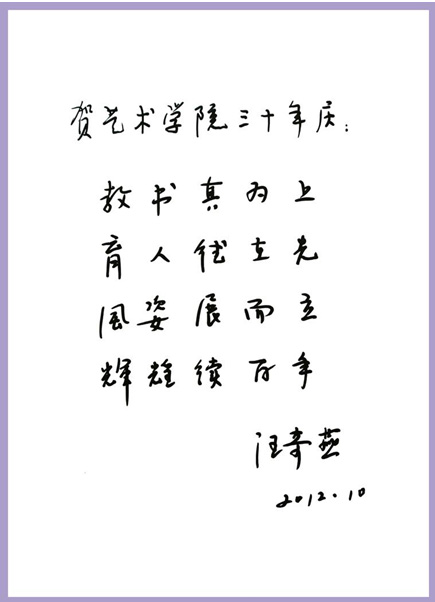 贺艺术学院三十年庆：
教书真为上
育人德在先
風姿展而立
辉煌续百年
汪奇燕
2012.10